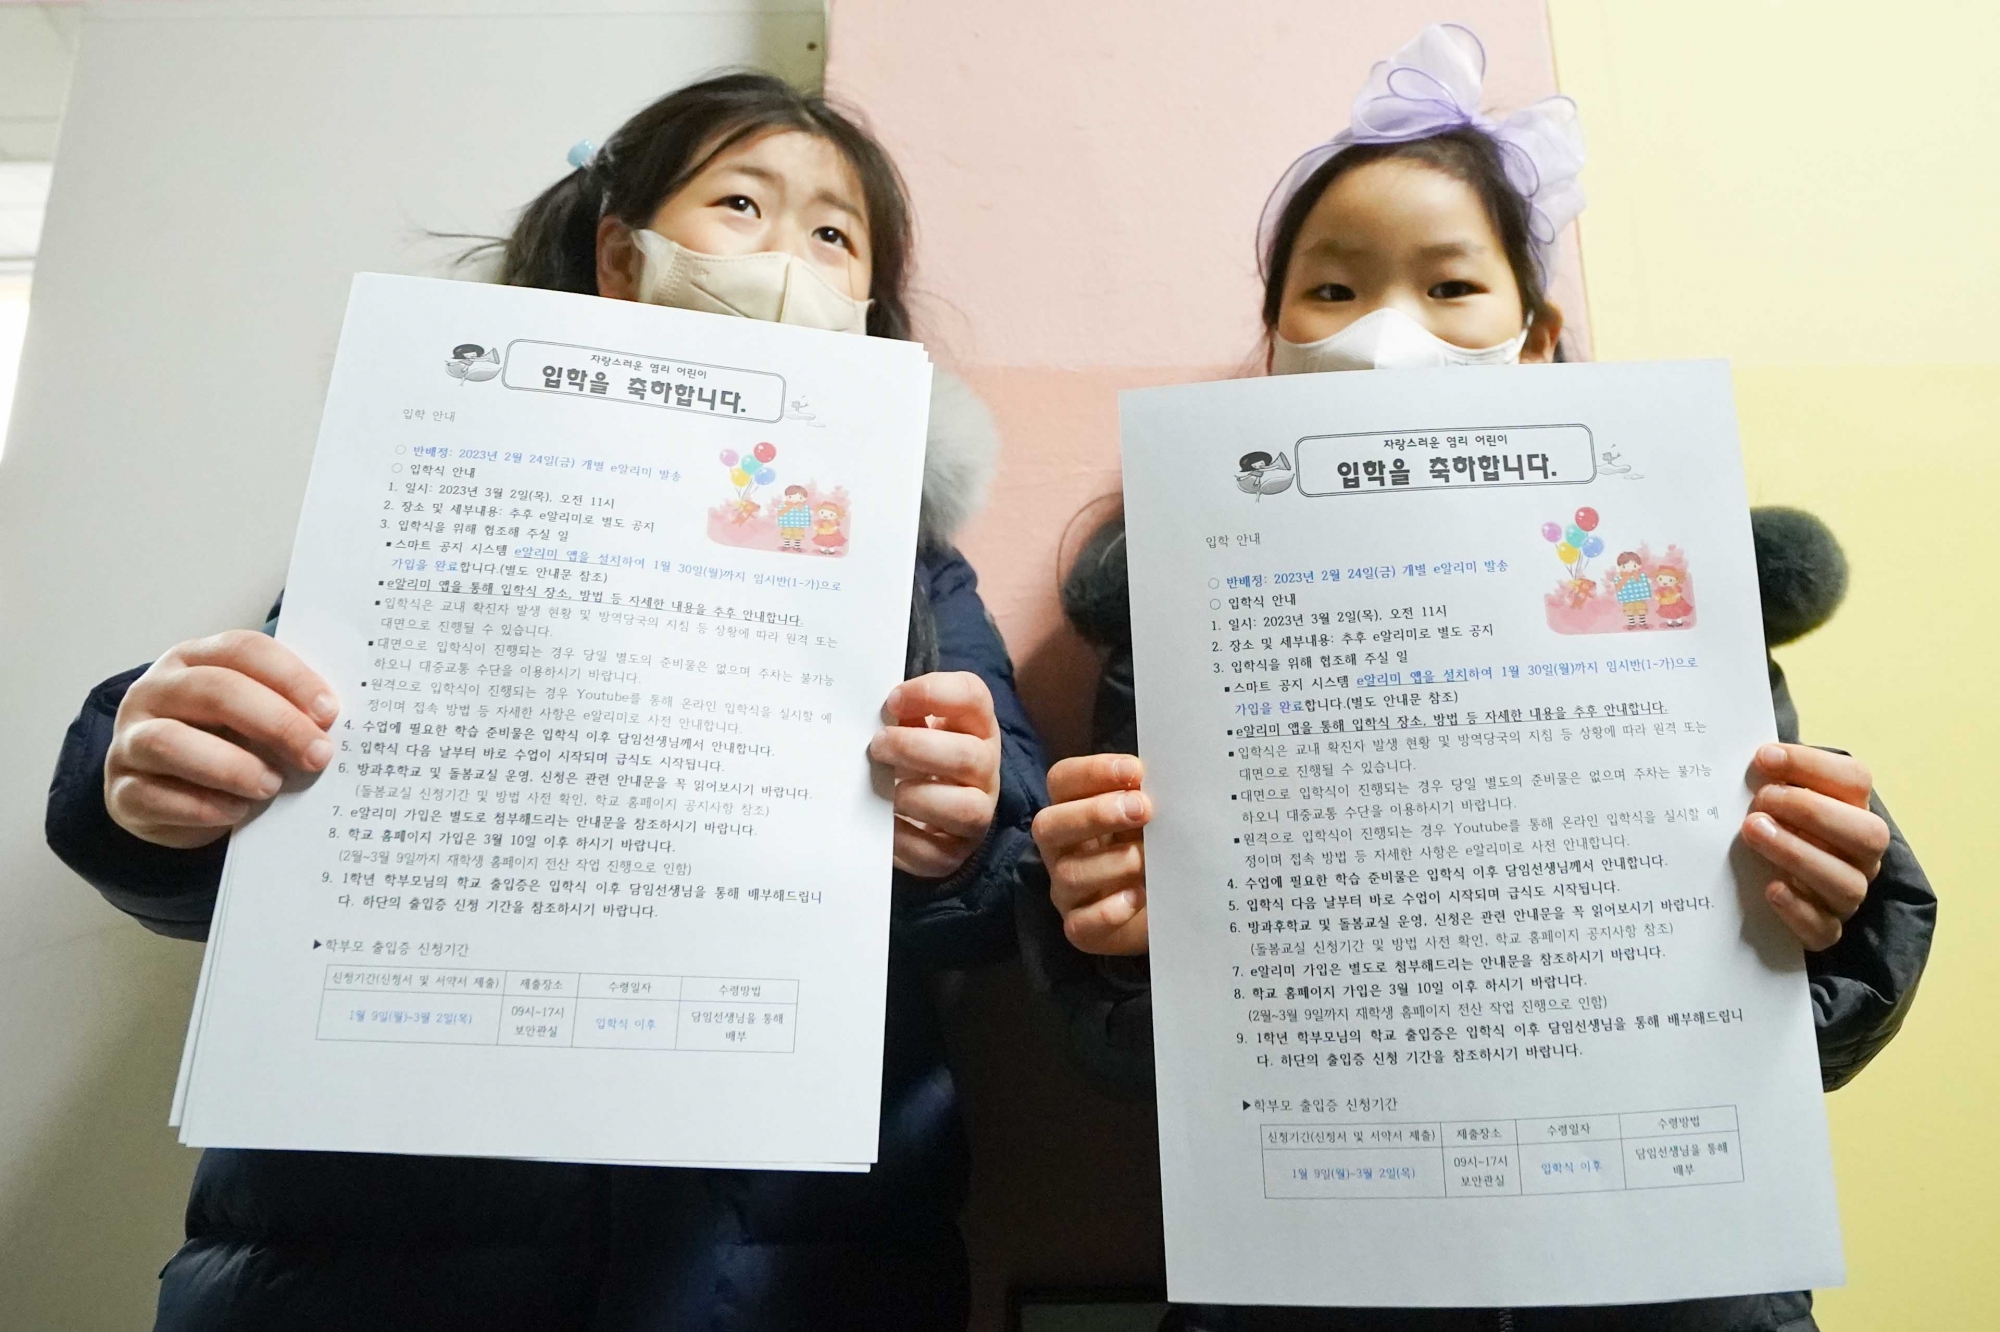 자랑스러운 염리 어린이
입학을 축하합니다.
입학 안내
○ 반배정: 2023년 2월 24일(금) 개별 e알리미 발송
○ 입학식 안내
1. 일시: 2023년 3월 2일(목), 오전 11시
2. 장소 및 세부내용: 추후 e알리미로 별도 공지
3. 입학식을 위해 협조해 주실 일
▪스마트 공지 시스템 e알리미 앱을 설치하여 1월 30일(월)까지 임시반(1-가)으로
가입을 완료합니다.(별도 안내문 참조)
▪e알리미 앱을 통해 입학식 장소, 방법 등 자세한 내용을 추후 안내합니다.
▪입학식은 교내 확진자 발생 현황 및 방역당국의 지침 등 상황에 따라 원격 또는
대면으로 진행될 수 있습니다.
▪대면으로 입학식이 진행되는 경우 당일 별도의 준비물은 없으며 주차는 불가능
하오니 대중교통 수단을 이용하시기 바랍니다.
▪원격으로 입학식이 진행되는 경우 Youtube를 통해 온라인 입학식을 실시할 예
정이며 접속 방법 등 자세한 사항은 e알리미로 사전 안내합니다.
4. 수업에 필요한 학습 준비물은 입학식 이후 담임선생님께서 안내합니다.
5. 입학식 다음 날부터 바로 수업이 시작되며 급식도 시작됩니다.
6. 방과후학교 및 돌봄교실 운영, 신청은 관련 안내문을 꼭 읽어보시기 바랍니다.
(돌봄교실 신청기간 및 방법 사전 확인, 학교 홈페이지 공지사항 참조)
7. e알리미 가입은 별도로 첨부해드리는 안내문을 참조하시기 바랍니다.
8. 학교 홈페이지 가입은 3월 10일 이후 하시기 바랍니다.
(2월~3월 9일까지 재학생 홈페이지 전산 작업 진행으로 인함)
9. 1학년 학부모님의 학교 출입증은 입학식 이후 담임선생님을 통해 배부해드립니
다. 하단의 출입증 신청 기간을 참조하시기 바랍니다.
▶학부모 출입증 신청기간
신청기간(신청서 및 서약서 제출) 제출장소 수령일자 수령방법
1월 9일(월)~3월 2일(목) 09시~17시 보안관실 입학식 이후 담임선생님을 통해 배부
자랑스러운 염리 어린이
입학을 축하합니다.
입학 안내
○ 반배정: 2023년 2월 24일(금) 개별 e알리미 발송
○ 입학식 안내
1. 일시: 2023년 3월 2일(목), 오전 11시
2. 장소 및 세부내용: 추후 e알리미로 별도 공지
3. 입학식을 위해 협조해 주실 일
▪스마트 공지 시스템 e알리미 앱을 설치하여 1월 30일(월)까지 임시반(1-가)으로
가입을 완료합니다.(별도 안내문 참조)
▪e알리미 앱을 통해 입학식 장소, 방법 등 자세한 내용을 추후 안내합니다.
▪입학식은 교내 확진자 발생 현황 및 방역당국의 지침 등 상황에 따라 원격 또는
대면으로 진행될 수 있습니다.
▪대면으로 입학식이 진행되는 경우 당일 별도의 준비물은 없으며 주차는 불가능
하오니 대중교통 수단을 이용하시기 바랍니다.
▪원격으로 입학식이 진행되는 경우 Youtube를 통해 온라인 입학식을 실시할 예
정이며 접속 방법 등 자세한 사항은 e알리미로 사전 안내합니다.
4. 수업에 필요한 학습 준비물은 입학식 이후 담임선생님께서 안내합니다.
5. 입학식 다음 날부터 바로 수업이 시작되며 급식도 시작됩니다.
6. 방과후학교 및 돌봄교실 운영, 신청은 관련 안내문을 꼭 읽어보시기 바랍니다.
(돌봄교실 신청기간 및 방법 사전 확인, 학교 홈페이지 공지사항 참조)
7. e알리미 가입은 별도로 첨부해드리는 안내문을 참조하시기 바랍니다.
8. 학교 홈페이지 가입은 3월 10일 이후 하시기 바랍니다.
(2월~3월 9일까지 재학생 홈페이지 전산 작업 진행으로 인함)
9. 1학년 학부모님의 학교 출입증은 입학식 이후 담임선생님을 통해 배부해드립니
다. 하단의 출입증 신청 기간을 참조하시기 바랍니다.
▶학부모 출입증 신청기간
신청기간(신청서 및 서약서 제출) 제출장소 수령일자 수령방법
1월 9일(월)~3월 2일(목) 09시~17시 보안관실 입학식 이후 담임선생님을 통해 배부